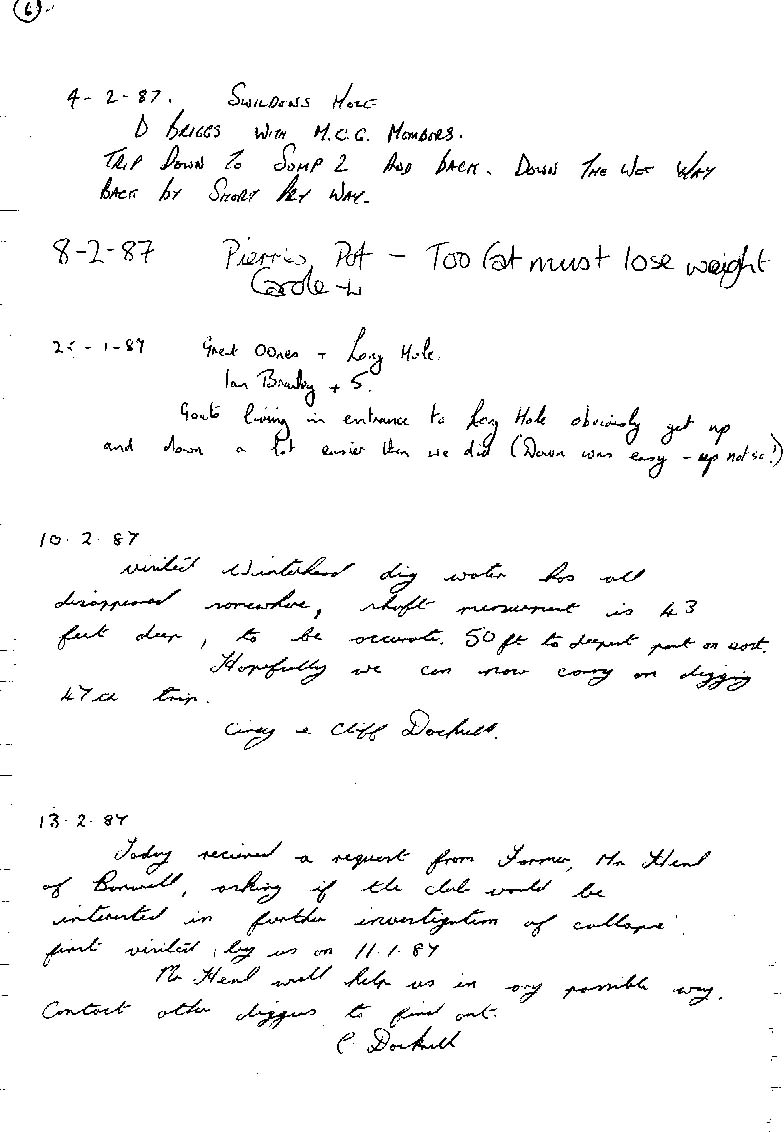 6
4-2-87. SWILDONS HOLE
D BRIGGS WITH M.C.G. MEMBERS.
TRIP DOWN TO SUMP 2 AND BACK. DOWN THE WET WAY
BACK BY SHORT DRY WAY.
8-2-87 Pierris Pot - Too fat must lose weight
Carole
-1-87 Great Oones + Long Hole.
Ian + 5.
Goats living in entrance to Long Hole obviously get up
and down a lot easier then we did (Down was easy - up not so!)
10.2.87
visited Winterhead dig water has all
disappeared somewhere, shaft mesurement is 43
feet deep, to be accurate. 50 ft to deepest part on
Hopefully we can now carry on digging
47th trip.
+ Cliff Dockrell.
13.2.87
Today recieved a request from Farmer, Mr
of Banwell, asking if the club would be
interested in further investigation of collapse
first visited, by us on 11.1.87
Mr will help us in any possible way.
Contact other diggers to find out.
C Dockrell